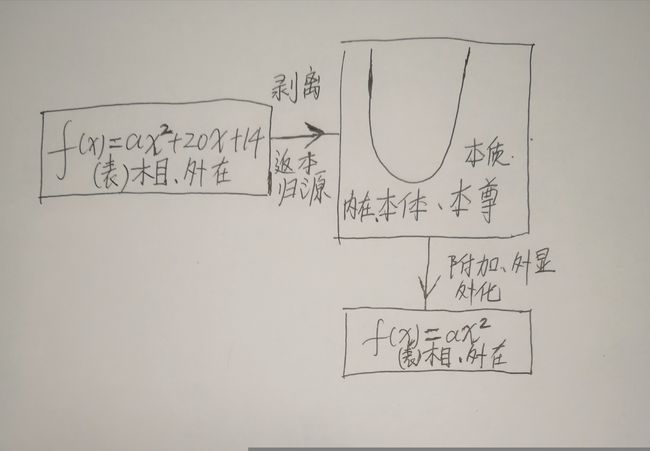 f(x)=ax²+20x+14
(表)相、外在
剥离
返本
归源
本质.
内在、本体、本尊
附加、外显
外化
f(x)=ax²
(表)相、外在